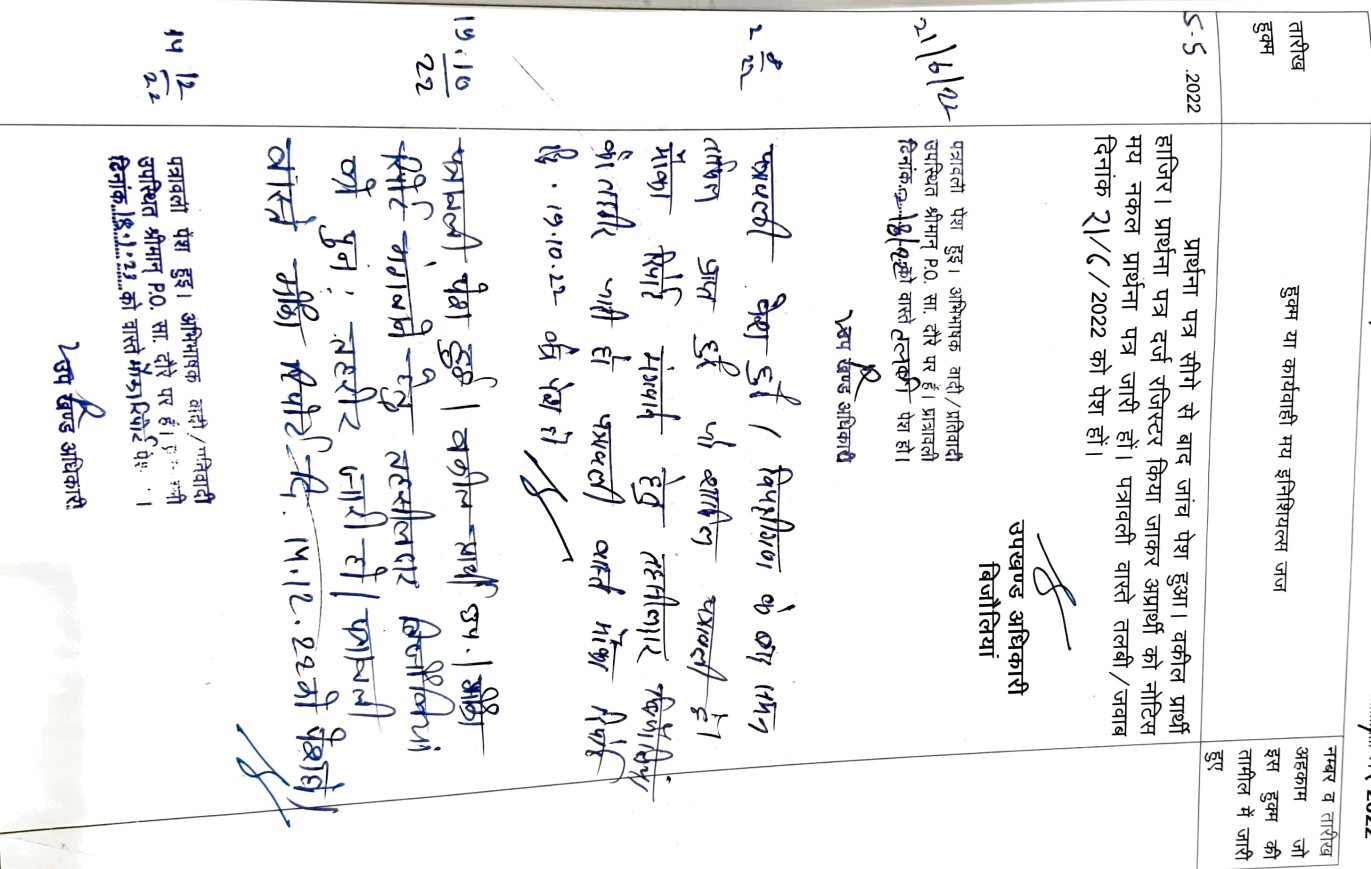 2022
तारीख
हुक्म
हुक्म या कार्यवाही मय इनिशियल्स जज
नम्बर व तारीख
अहकाम जो
इस हुक्म की
तामील में जारी
हुए
5.5.2022
प्रार्थना पत्र सीगे से बाद जांच पेश हुआ। वकील प्रार्थी
हाजिर। प्रार्थना पत्र दर्ज रजिस्टर किया जाकर अप्रार्थी को नोटिस
मय नकल प्रार्थना पत्र जारी हों। पत्रावली वास्ते तलबी/जवाब
दिनांक 21/6/2022 को पेश हों।
उपखण्ड अधिकारी
बिजौलियां
21/6/22
पत्रावली पेश हुई। अभिभाषक वादी/प्रतिवादी
उपस्थित श्रीमान् P.O. सा. दौरे पर हैं। पत्रावली
दिनांक को वास्ते तलबी पेश हो।
उप खण्ड अधिकारी
2 8/22
पत्रावली पेश हुई।
तामिल प्राप्त हुई जो शामिल पत्रावली हो
मौका रिपोर्ट मंगवाने हेतु तहसीलदार बिजौलियां
को तहरीर जारी हो पत्रावली वास्ते मौका रिपोर्ट
दि. 19.10.22 को पेश हो
19.10/22
पत्रावली पेश हुई। वकील प्रार्थी उप.। मौका
रिपोर्ट मंगवाने हेतु तहसीलदार बिजौलियां
को पुन: तहरीर जारी हो। पत्रावली
वास्ते मौका रिपोर्ट दि. 14.12.22 को पेश हो।
14 12/22
पत्रावली पेश हुई। अभिभाषक वादी/प्रतिवादी
उपस्थित श्रीमान् P.O. सा. दौरे पर हैं।
दिनांक 18.1.23 को वास्ते मौका रिपोर्ट पे
उप खण्ड अधिकारी